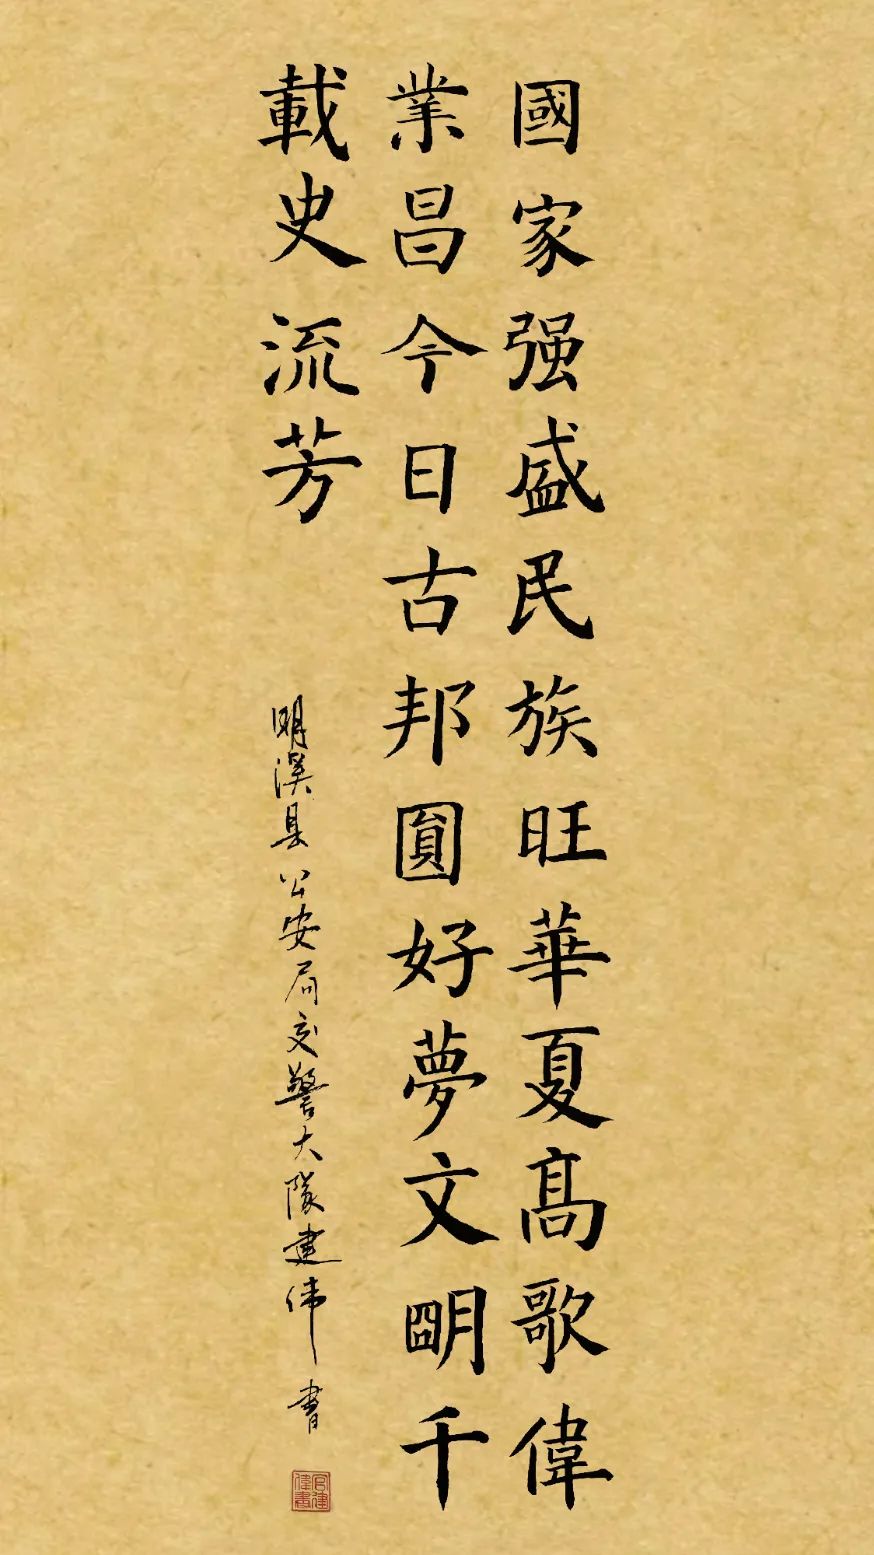 國家强盛民族旺華夏高歌偉
業昌今日古邦圓好夢文明千
載史流芳
明溪县公安局交警大隊建伟書
官建偉書